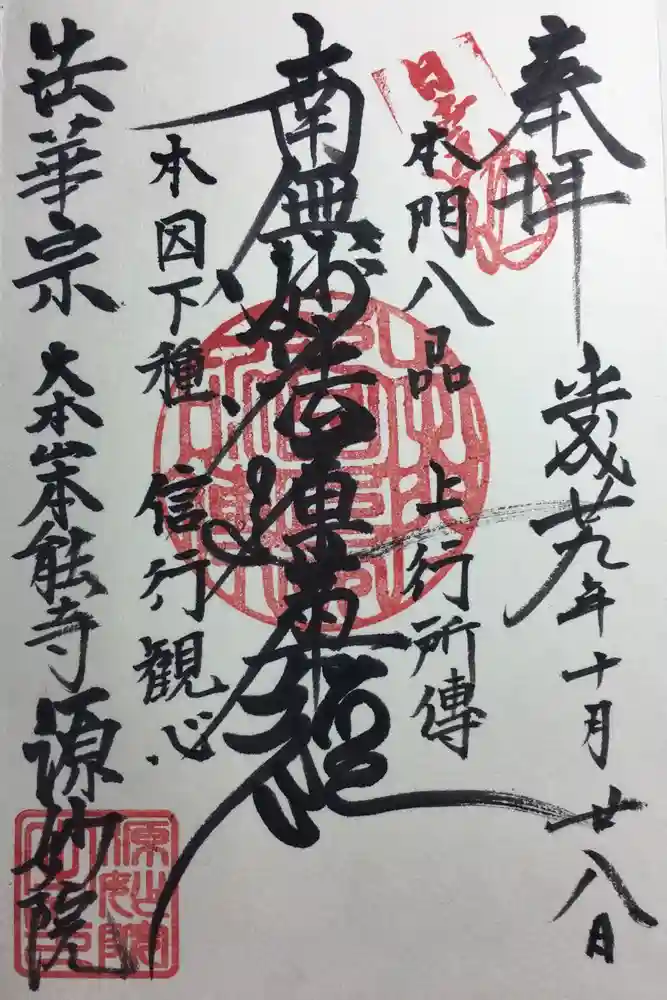 奉拝
歳廿九年十月廿八日
本門八品 上行所傳
南無妙法蓮華経
本因下種 信行観心
法華宗 大本山本能寺 源妙院
源妙院